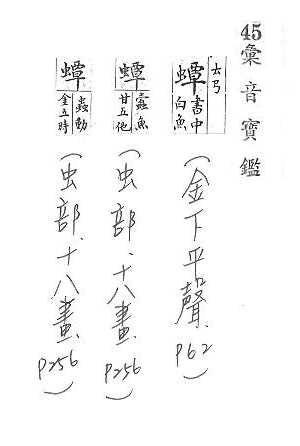 45彙音寶鑑
ㄊㄢ
蟫
書中
白魚
(金下平聲. P62)
蟫
蠹魚
甘五他
(虫部.十八畫. P256)
蟫
蟲動
金五時
(虫部.十八畫. P256)